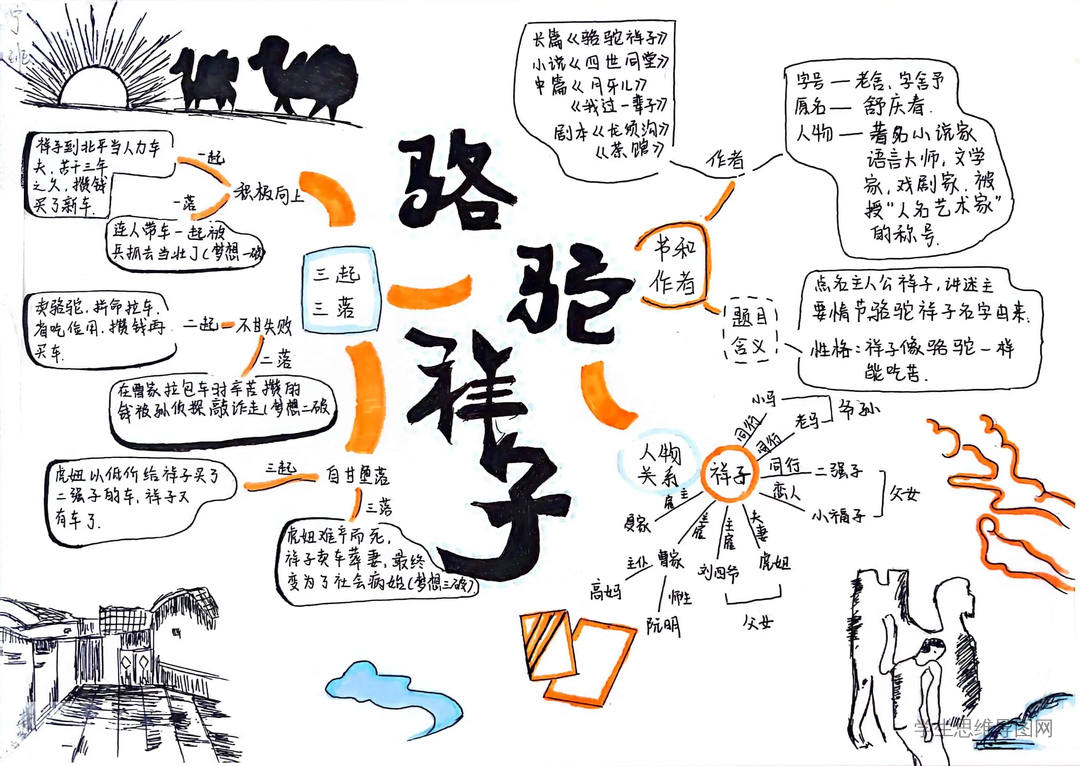 骆
驼
祥
子
三起
三落
积极向上
一起
祥子到北平当人力车
夫,苦干三年
之久,攒钱
买了新车.
一落
连人带车一起被
兵抓去当壮丁(梦想一破)
不甘失败
二起
卖骆驼,拼命拉车.
省吃俭用,攒钱再
买车.
二落
在曹家拉包车时辛苦攒的
钱被孙侦探敲诈走(梦想二破)
自甘堕落
三起
虎妞以低价给祥子买了
二强子的车,祥子又
有车了.
三落
虎妞难产而死,
祥子卖车葬妻,最终
变为了社会病始(梦想三破)
书和
作者
作者
长篇《骆驼祥子》
小说《四世同堂》
中篇《月牙儿》
《我这一辈子》
剧本《龙须沟》
《茶馆》
字号—老舍,字舍予
原名—舒庆春.
人物—著名小说家
语言大师,文学
家,戏剧家.被
授"人名艺术家"
的称号.
题目
含义
点名主人公祥子,讲述主
要情节骆驼祥子名字由来.
性格:祥子像骆驼一样
能吃苦.
人物
关系
祥子
同行
小马
同行
老马
爷孙
同行
二强子
恋人
小福子
父女
夫妻
虎妞
主雇
刘四爷
父女
主雇
曹家
主仆
高妈
师生
阮明
雇主
学生思维导图网